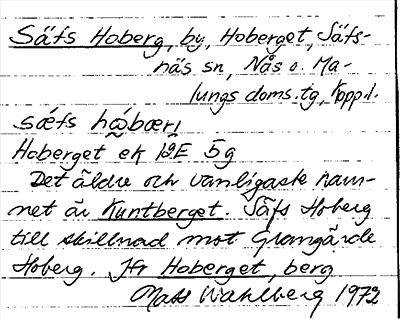 Säfs Hoberg, by, Hoberget, Säfs-
näs sn, Nås o. Ma-
lungs doms.tg, Kopp.l.
Hoberget ek 12E 5g
Det äldre och vanligaste nam-
net är Kuntberget. Säfs Hoberg
till skillnad mot Grangärde
Hoberg. Jfr Hoberget, berg
Mats Wahlberg 1972